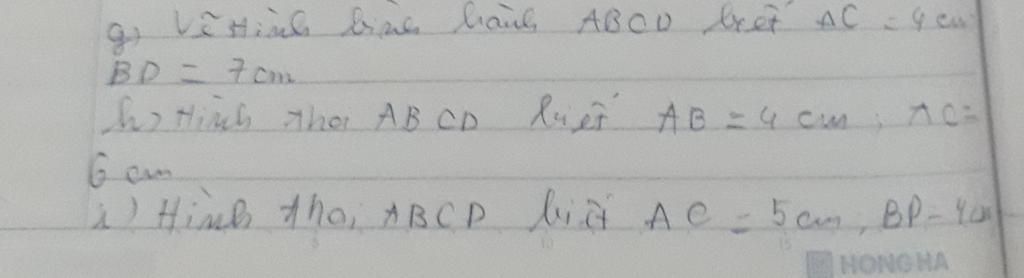 g) Vẽ Hình bình hành ABCD biết AC = 4 cm
BD = 7 cm
h) Hình thoi ABCD biết AB = 4 cm ; AC =
6 cm
i) Hình thoi ABCD biết AC = 5 cm, BD = 4 cm
5 10 15
HONG HA